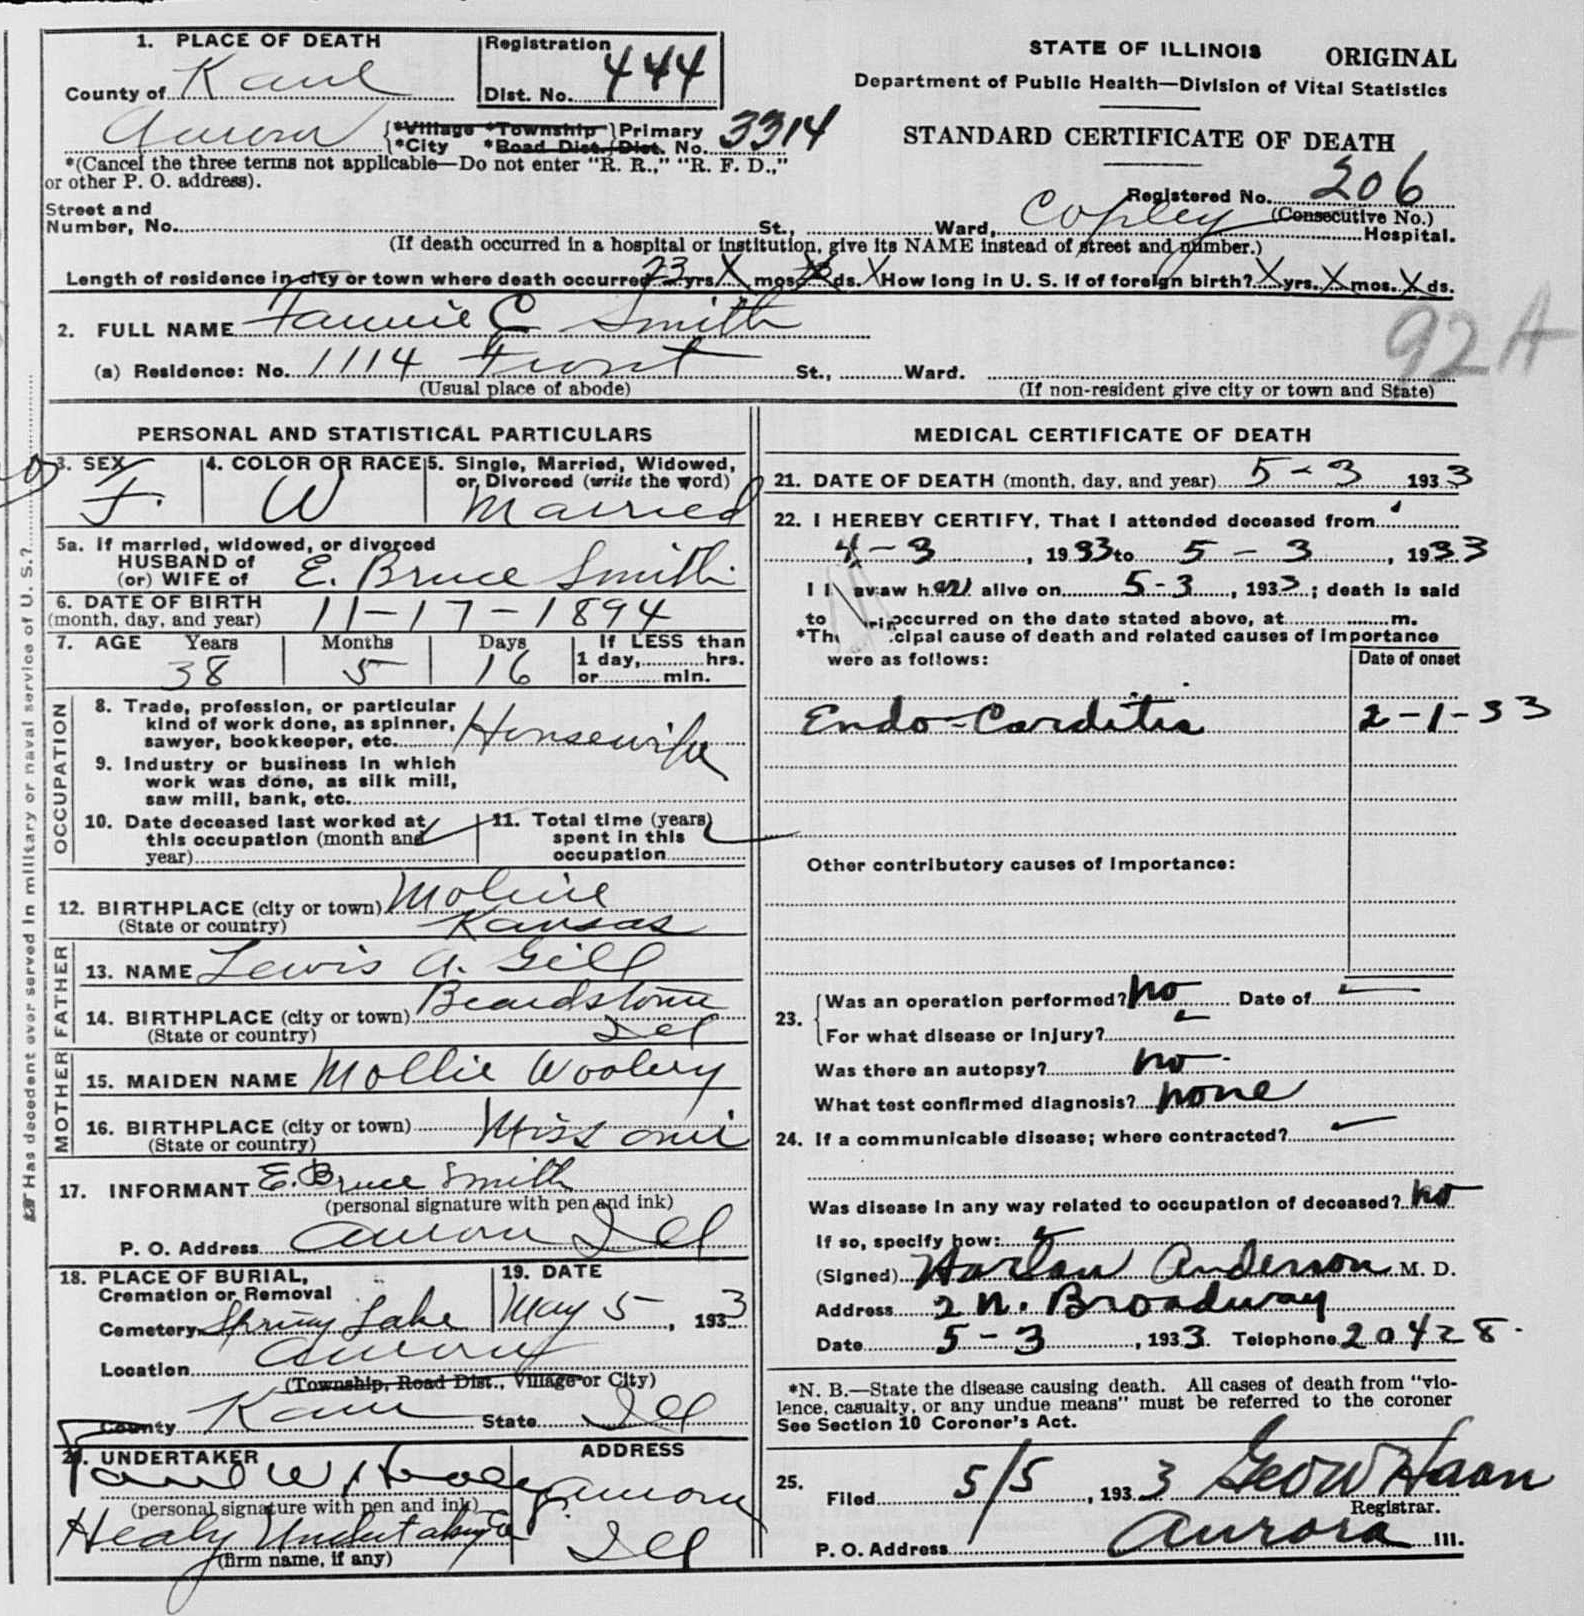 1. PLACE OF DEATH
County of Kane
Registration Dist. No. 444
STATE OF ILLINOIS ORIGINAL
Department of Public Health—Division of Vital Statistics
STANDARD CERTIFICATE OF DEATH
Aurora {*Village *Township } Primary
{*City *Road Dist. } Dist. No. 3314
*(Cancel the three terms not applicable—Do not enter “R. R.,” “R. F. D.,”
or other P. O. address).
Registered No. 206
(Consecutive No.)
Street and
Number, No. St., Ward, Copley Hospital.
(If death occurred in a hospital or institution, give its NAME instead of street and number.)
Length of residence in city or town where death occurred 23 yrs. X mos. X ds. X How long in U. S. if of foreign birth? X yrs. X mos. X ds.
2. FULL NAME Fannie C Smith
92A
(a) Residence: No. 1114 Front St., Ward.
(Usual place of abode) (If non-resident give city or town and State)
Has decedent ever served in military or naval service of U. S.?
PERSONAL AND STATISTICAL PARTICULARS
3. SEX 4. COLOR OR RACE 5. Single, Married, Widowed,
or Divorced (write the word)
F. W Married
5a. If married, widowed, or divorced
HUSBAND of
(or) WIFE of E. Bruce Smith
6. DATE OF BIRTH
(month, day, and year) 11-17-1894
7. AGE Years Months Days If LESS than
1 day, hrs.
or min.
38 5 16
OCCUPATION
8. Trade, profession, or particular
kind of work done, as spinner,
sawyer, bookkeeper, etc. Housewife
9. Industry or business in which
work was done, as silk mill,
saw mill, bank, etc.
10. Date deceased last worked at
this occupation (month and
year)
11. Total time (years)
spent in this
occupation
12. BIRTHPLACE (city or town) Moline
(State or country) Kansas
FATHER
13. NAME Lewis A. Gill
14. BIRTHPLACE (city or town) Beardstown
(State or country) Ill
MOTHER
15. MAIDEN NAME Mollie Woolery
16. BIRTHPLACE (city or town)
(State or country) Missouri
17. INFORMANT E. Bruce Smith
(personal signature with pen and ink)
P. O. Address Aurora Ill
18. PLACE OF BURIAL,
Cremation or Removal
19. DATE
Cemetery Spring Lake May 5, 1933
Location Aurora
(Township, Road Dist., Village or City)
County Kane State Ill
20. UNDERTAKER ADDRESS
W. Healy Aurora
(personal signature with pen and ink)
Healy Undertaking Co Ill
(firm name, if any)
MEDICAL CERTIFICATE OF DEATH
21. DATE OF DEATH (month, day, and year) 5-3 1933
22. I HEREBY CERTIFY, That I attended deceased from
4-3, 1933 to 5-3, 1933
I saw her alive on 5-3, 1933; death is said
to occurred on the date stated above, at m.
*The cipal cause of death and related causes of importance
were as follows: Date of onset
Endo-Carditis 2-1-33
Other contributory causes of importance:
23. Was an operation performed? no Date of
For what disease or injury?
Was there an autopsy? no
What test confirmed diagnosis? none
24. If a communicable disease; where contracted?
Was disease in any way related to occupation of deceased? no
If so, specify how:
(Signed) Harlan Anderson M. D.
Address 2 N. Broadway
Date 5-3, 1933. Telephone 20428.
*N. B.—State the disease causing death. All cases of death from “vio-
lence, casualty, or any undue means” must be referred to the coroner
See Section 10 Coroner's Act.
25. Filed 5/5, 1933 Geo W Haan
Registrar.
P. O. Address Aurora Ill.